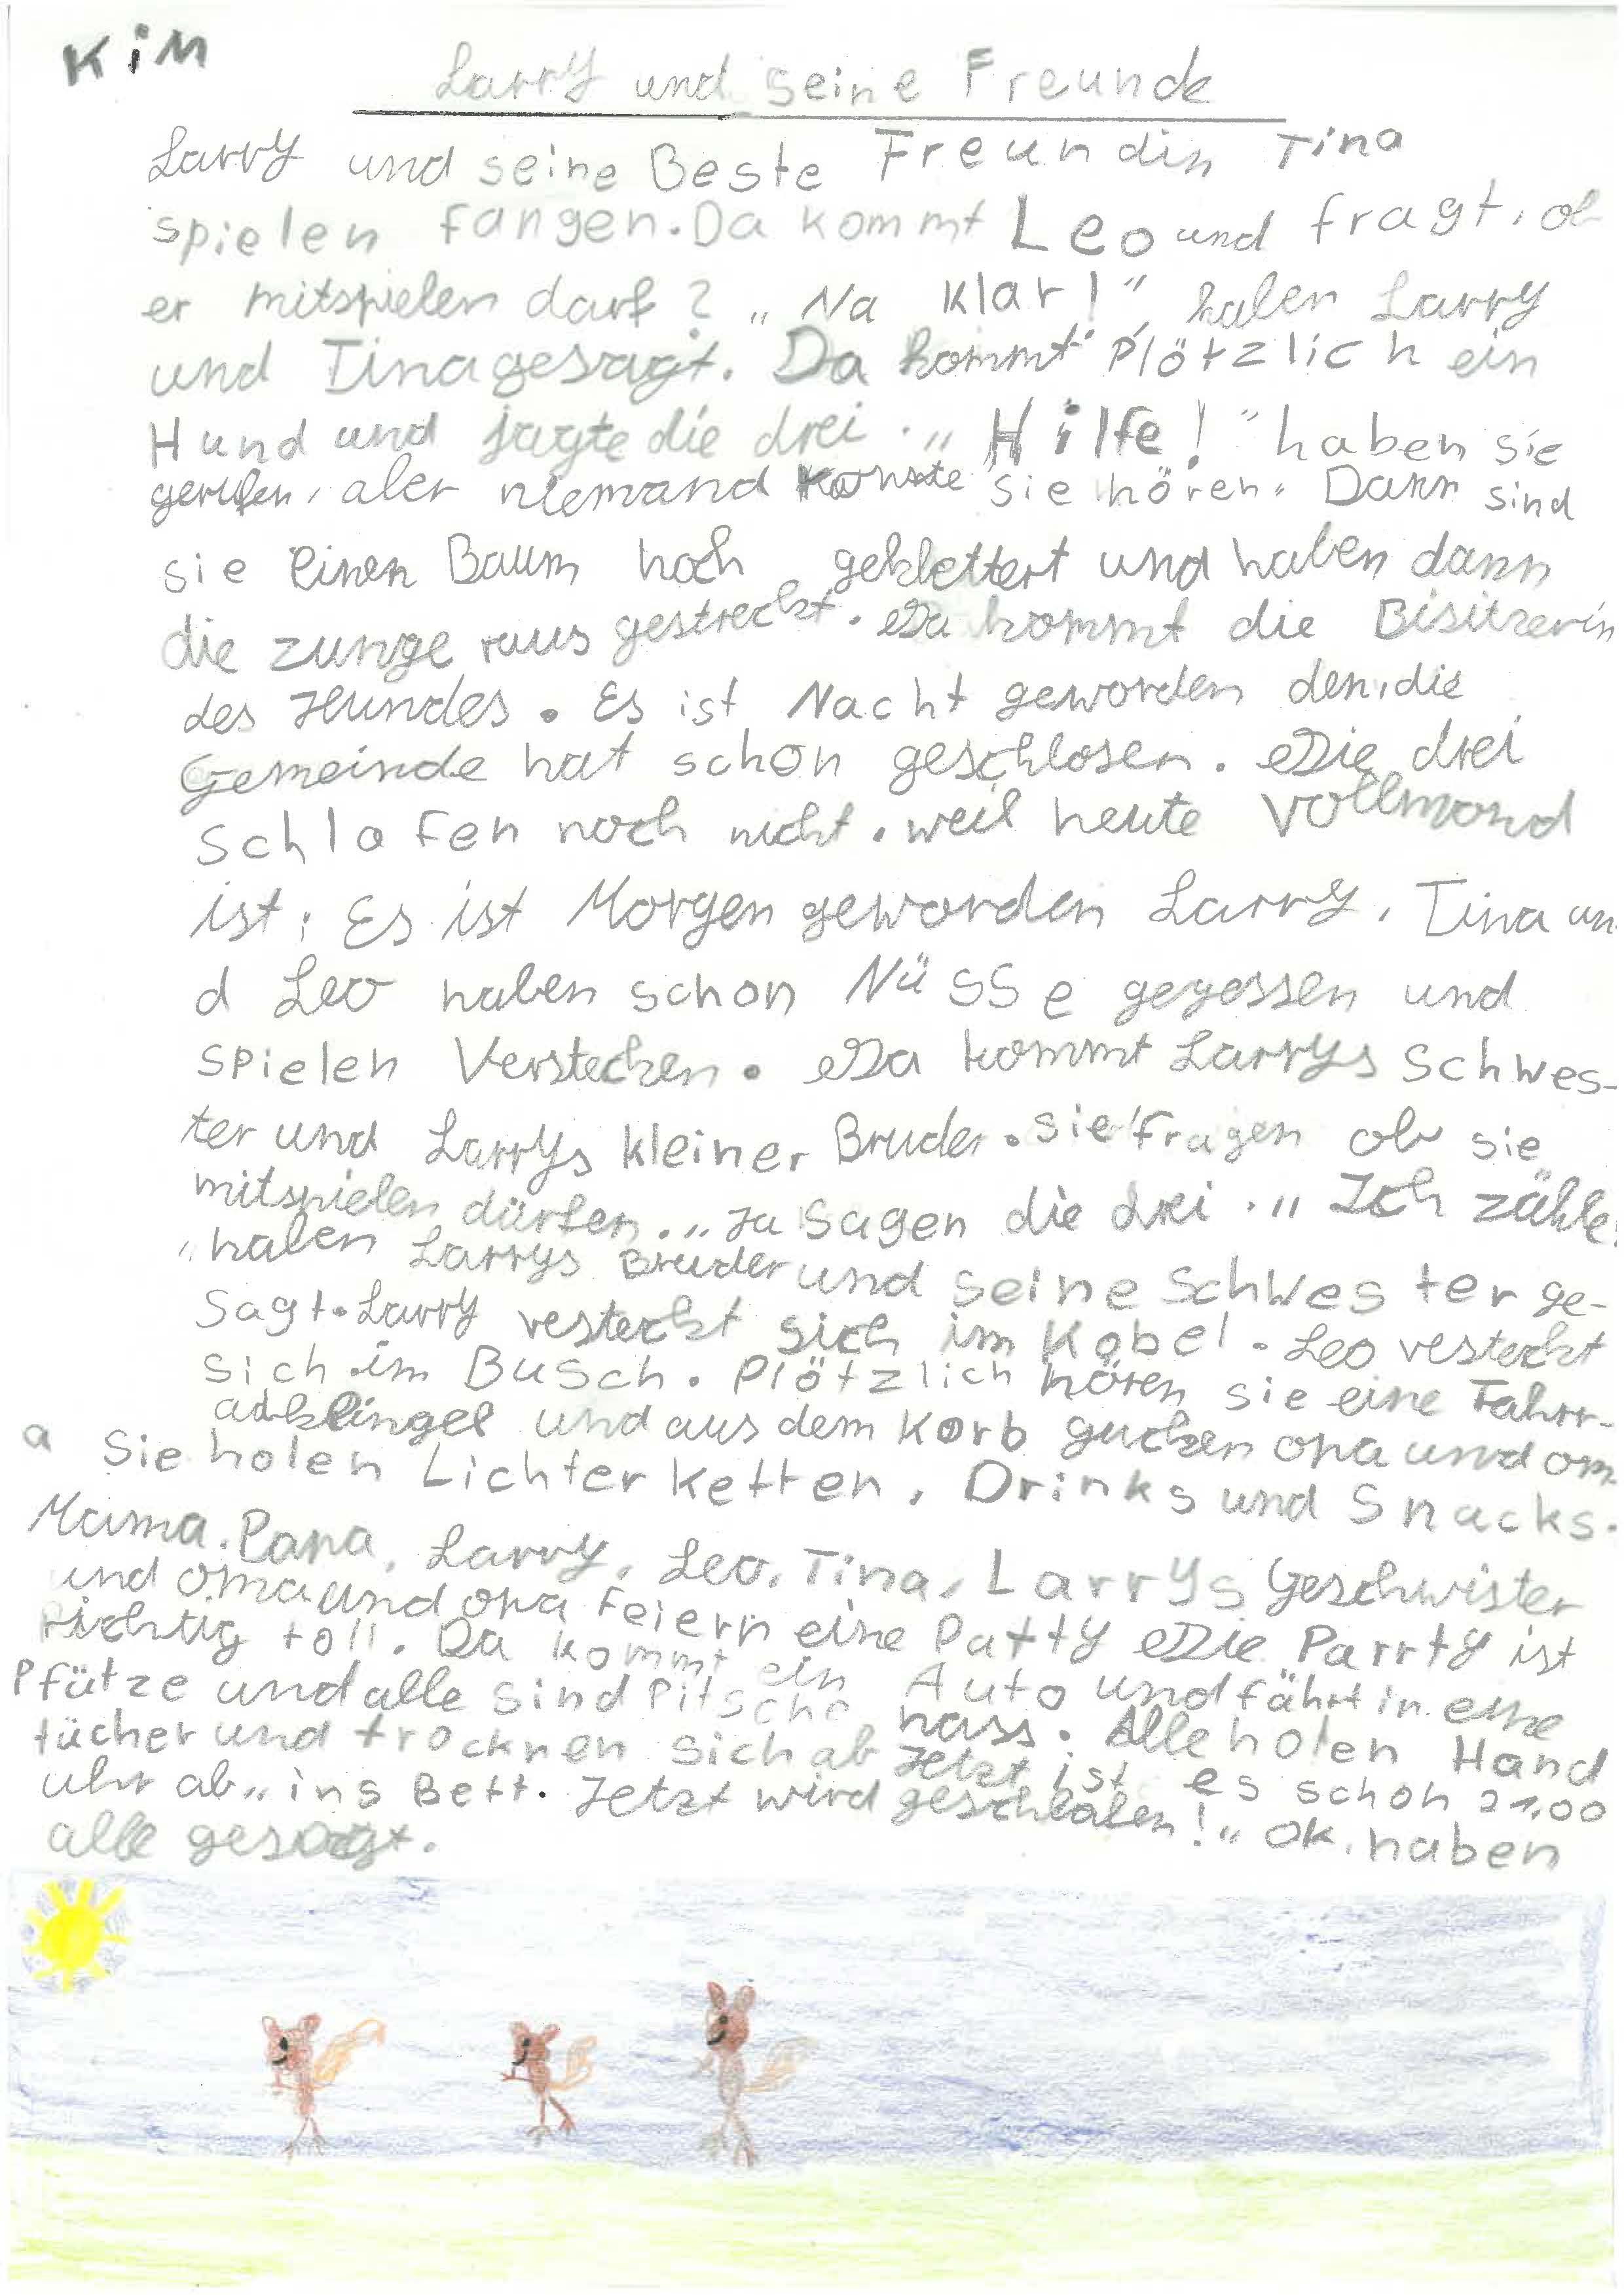 Kim
Larry und seine Freunde
Larry und seine Beste Freundin Tina
spielen fangen. Da kommt Leo und fragt, ob
er mitspielen darf? „Na klar!" haben Larry
und Tina gesagt. Da kommt plötzlich ein
Hund und jagte die drei. „Hilfe!" haben sie
gerufen, aber niemand konnte sie hören. Dann sind
sie einen Baum hoch geklettert und haben dann
die zunge raus gestreckt. Da kommt die Bisitzerin
des Hundes. Es ist Nacht geworden den, die
Gemeinde hat schon geschlosen. Die drei
Schlafen noch nicht, weil heute Vollmond
ist: Es ist Morgen geworden Larry, Tina un
d Leo haben schon Nüsse gegessen und
spielen Verstecken. Da kommt Larrys Schwes-
ter und Larrys kleiner Bruder. sie fragen ob sie
mitspielen dürfen. „Ja sagen die drei. „Ich zähle!
"haben Larrys Bruder und seine Schwester ge-
sagt. Larry versteckt sich im Kobel. Leo versteckt
sich im Busch. Plötzlich hören sie eine Fahrr-
adklingel und aus dem Korb gucken opa und om
a Sie holen Lichter ketten, Drinks und Snacks.
Mama, Papa, Larry, Leo, Tina, Larrys Geschwister
und oma und opa Feiern eine Patty Die Parrty ist
richtig toll. Da kommt ein Auto und fährt in eine
Pfütze und alle sind Pitsche nass. Alle holen Hand
tücher und trocknen sich ab Jetzt ist es schon 21,00
uhr ab „ins Bett. Jetzt wird geschlafen!" ok, haben
alle gesagt.